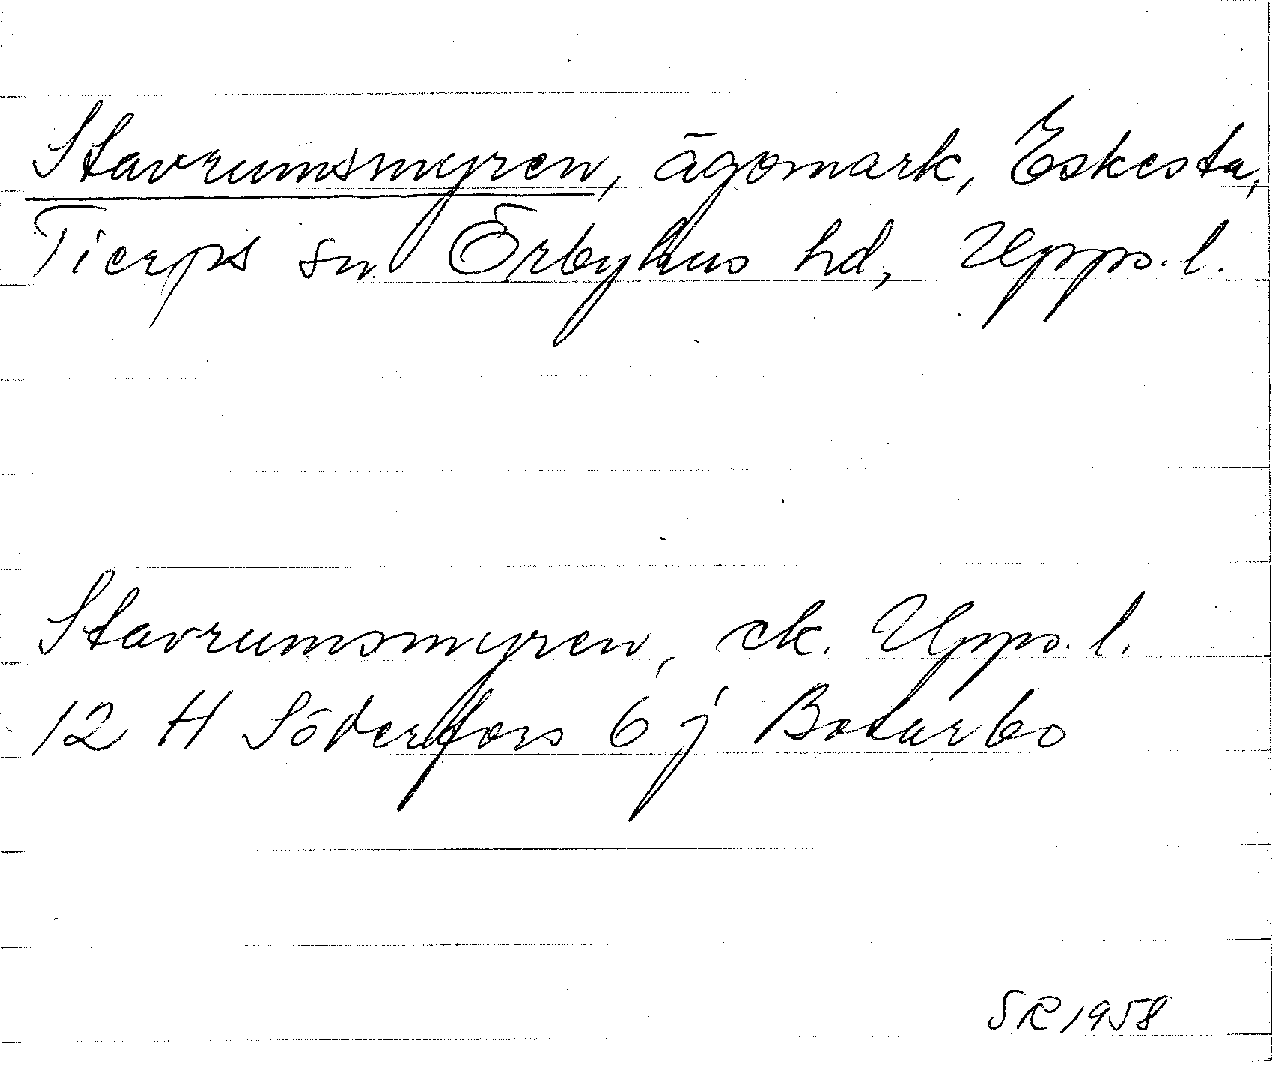 Stavrumsmyren, ägomark, Eskesta,
Tierps sn Örbyhus hd, Upps. l.
Stavrumsmyren, ek. Upps. l.
12 H Söderfors 6 j Botarbo
SR 1958